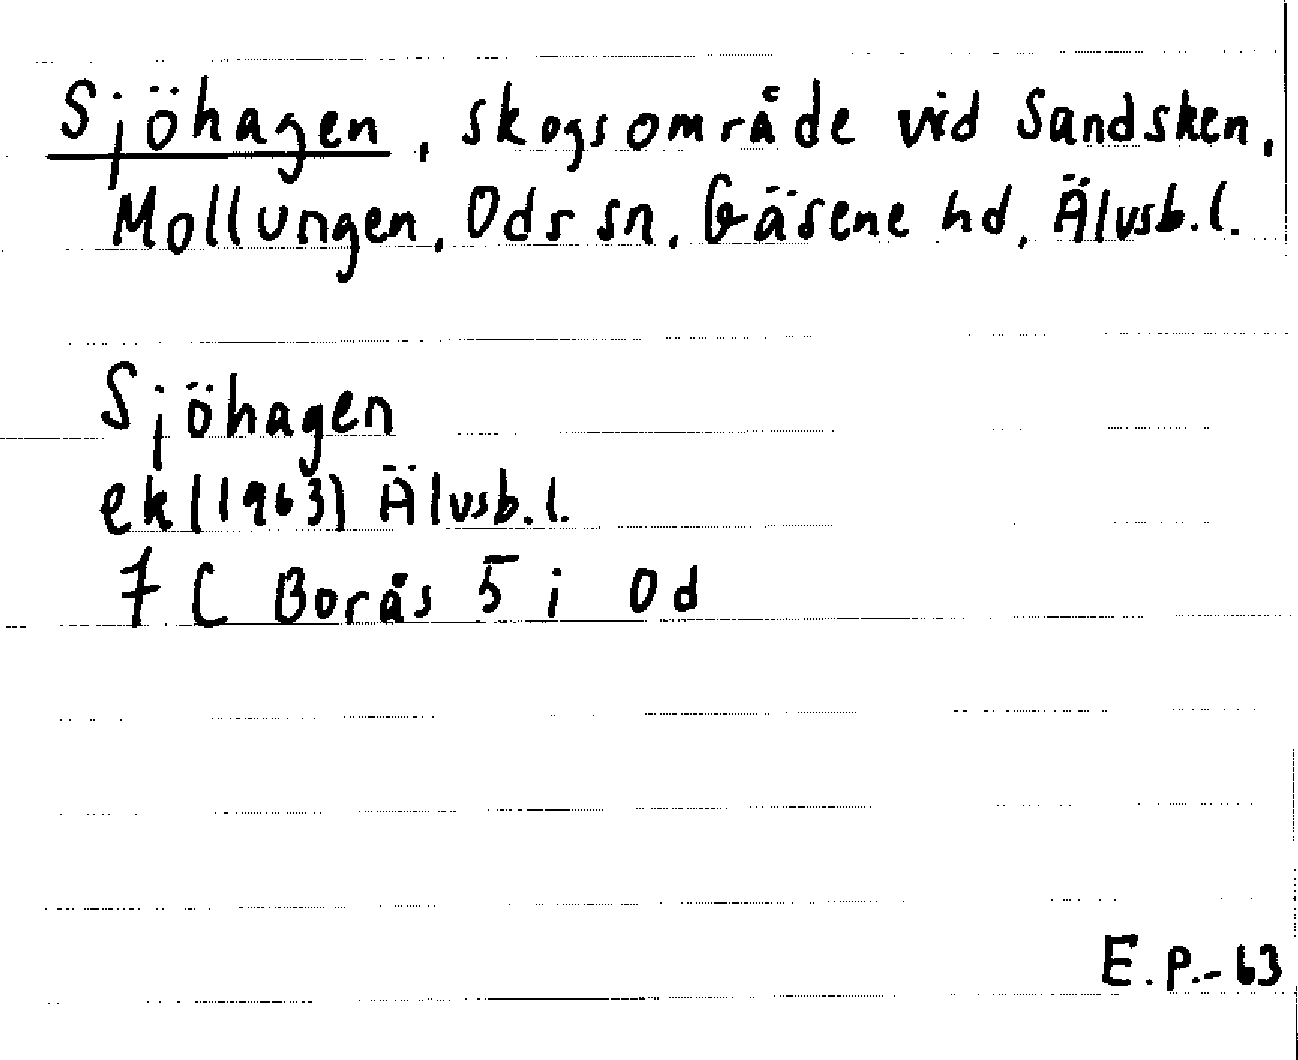 Sjöhagen, skogsområde vid Sandsken,
Mollungen, Ods sn, Gäsene hd, Älvsb.l.
Sjöhagen
ek (1963) Älvsb.l.
7 C Borås 5 i Od
E.P.-63